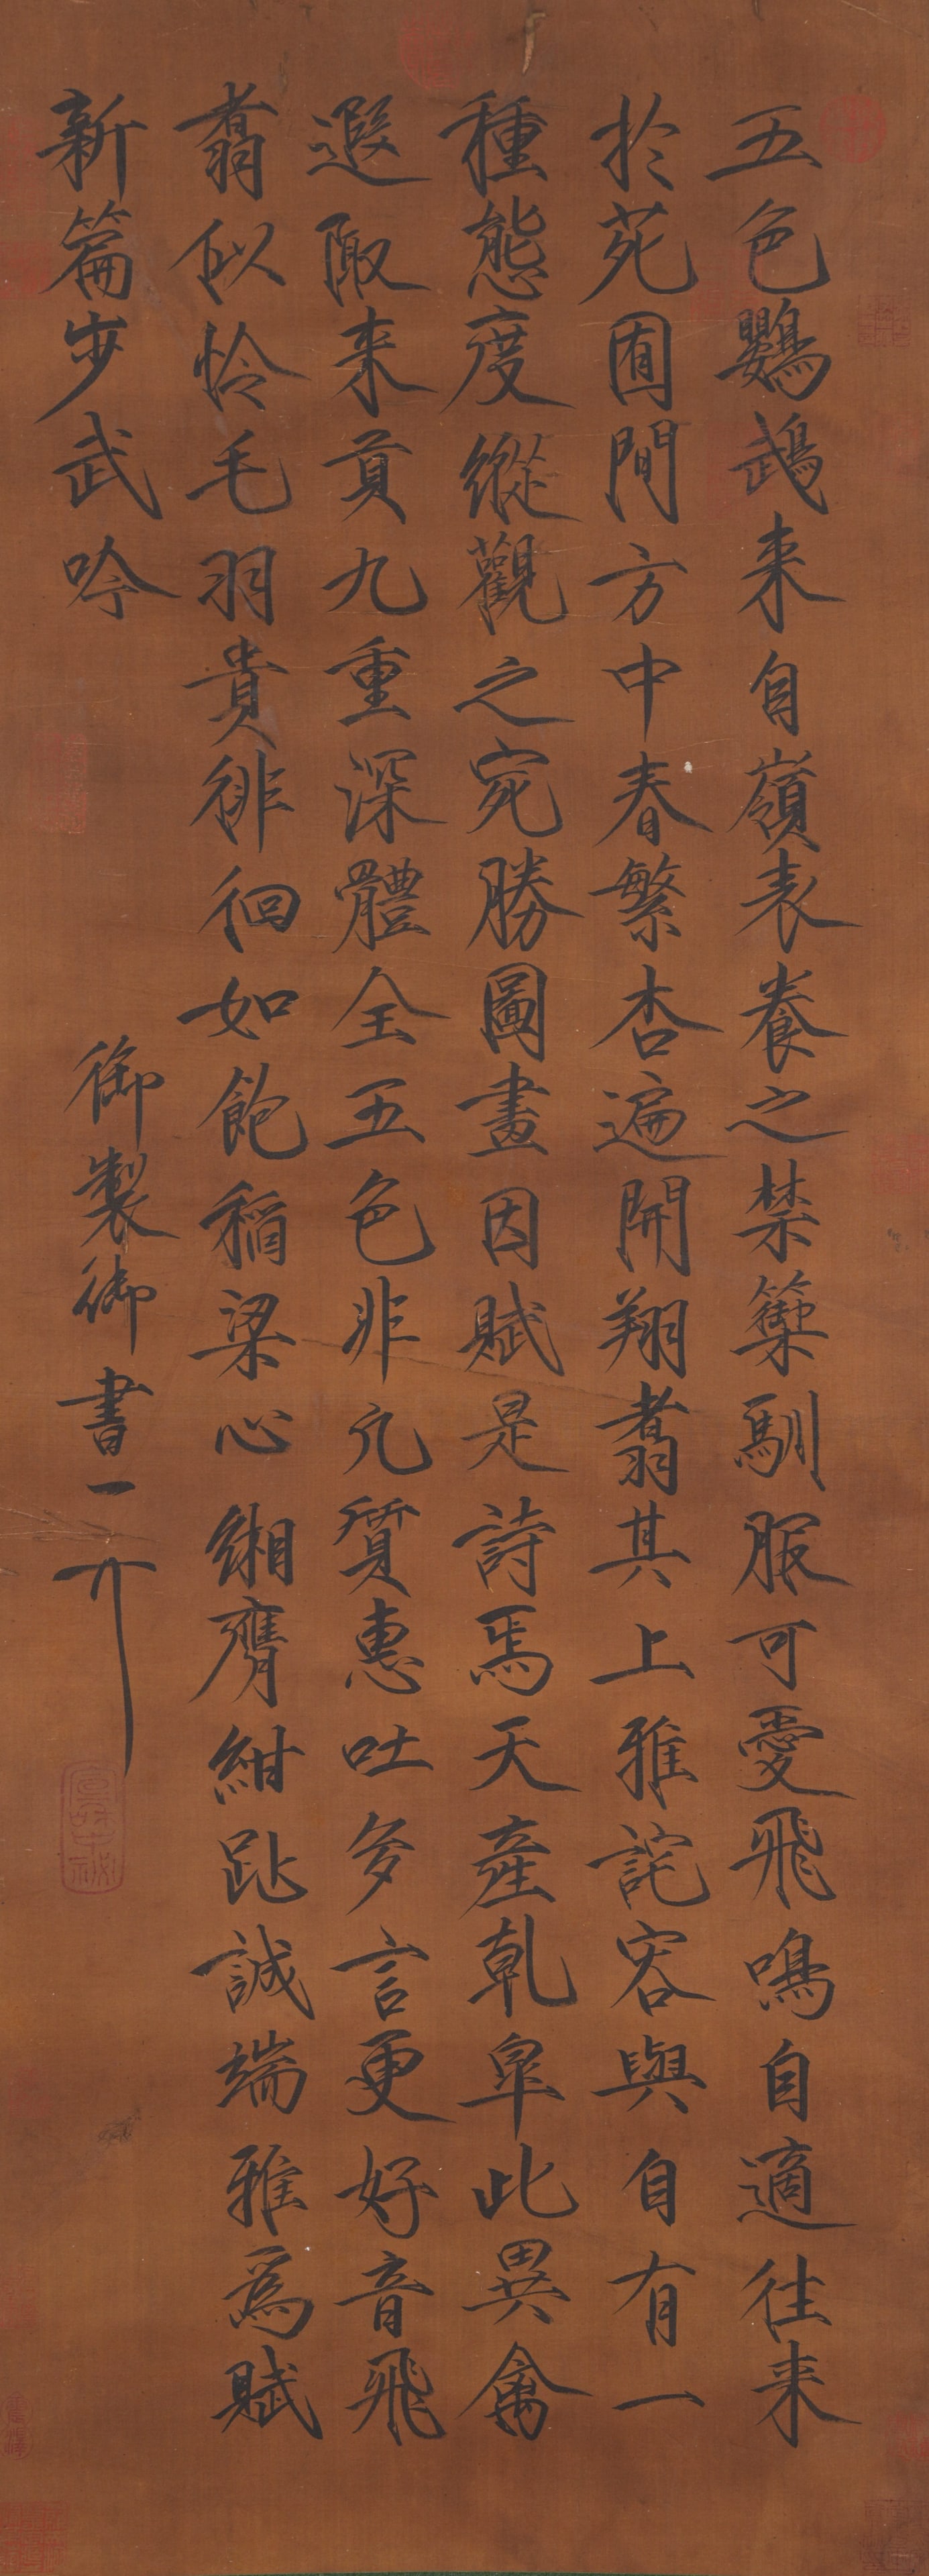 五色鸚鵡来自嶺表養之禁籞馴服可愛飛鳴自適往来
於苑囿間方中春繁杏遍開翔翥其上雅詫容與自有一
種態度縱觀之宛勝圖畫因賦是詩焉天產乾皐此異禽
遐陬来貢九重深體全五色非凡質惠吐多言更好音飛
翥似怜毛羽貴徘徊如飽稻粱心緗膺紺趾誠端雅為賦
新篇步武吟
御製御書